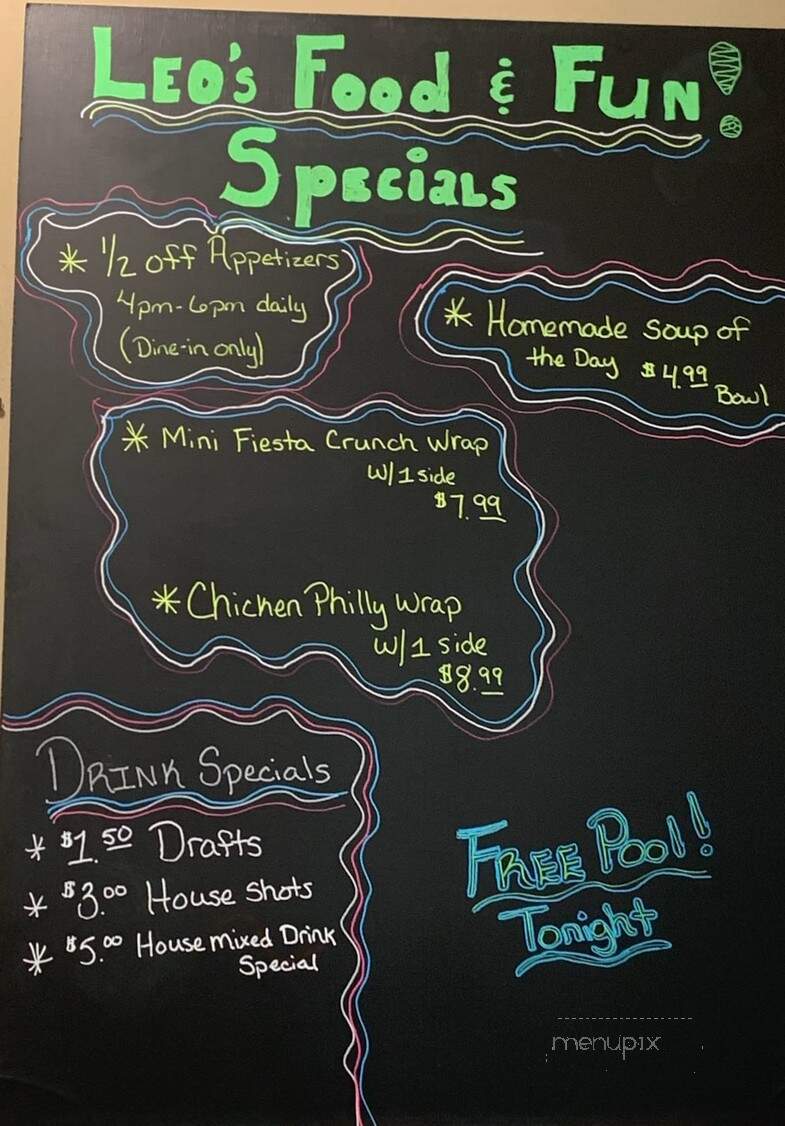 Leo's Food & Fun!
Specials
* 1/2 off Appetizers
4pm-6pm daily
(Dine-in only)
* Homemade Soup of
the Day $4.99
Bowl
* Mini Fiesta Crunch Wrap
w/1 side
$7.99
* Chicken Philly Wrap
w/1 side
$8.99
Drink Specials
* $1.50 Drafts
* $3.00 House Shots
* $5.00 House mixed Drink
Special
Free Pool!
Tonight
menupix